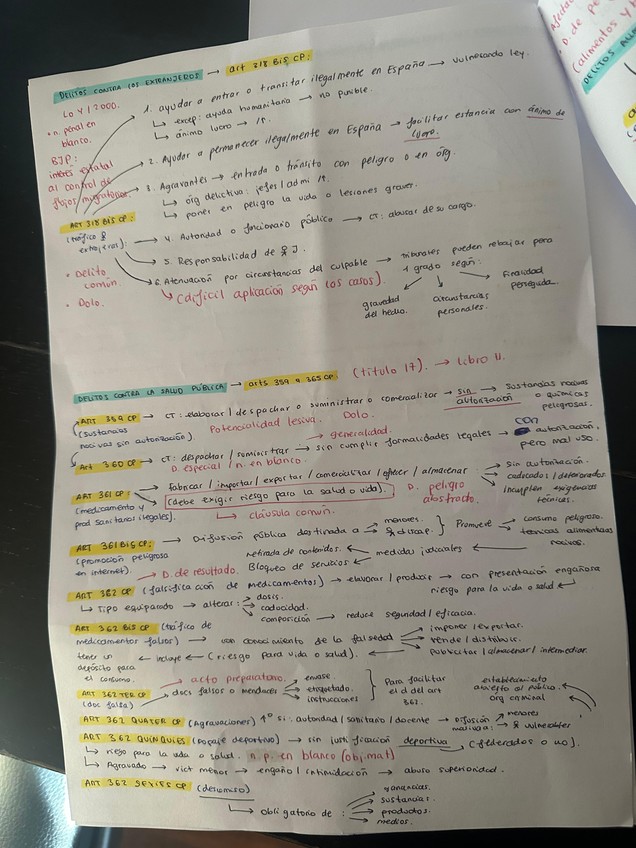 DELITOS CONTRA LOS EXTRANJEROS → art 318 BIS CP:
LO 4/2000.
• n. penal en blanco.
BJP: interés estatal al control de flujos migratorios.
ART 318 BIS CP:
(tráfico extranjeros).
• Delito común.
• Dolo.
1. ayudar a entrar o transitar ilegalmente en España → vulnerando ley.
↳ excep: ayuda humanitaria → no punible.
↳ ánimo lucro → ↑P.
2. Ayudar a permanecer ilegalmente en España → facilitar estancia con ánimo de lucro.
3. Agravantes → entrada o tránsito con peligro o en órg.
↳ órg delictiva: jefes / admi ↑P.
↳ poner en peligro la vida o lesiones graves.
4. Autoridad o funcionario público → CT: abusar de su cargo.
5. Responsabilidad de J.
6. Atenuación por circunstancias del culpable → tribunales pueden rebajar pena 1 grado según:
↳ (difícil aplicación según los casos).
gravedad del hecho.
circunstancias personales.
Finalidad perseguida.
DELITOS CONTRA LA SALUD PÚBLICA → arts 359 y 365 CP (título 17). → Libro II.
ART 359 CP → CT: elaborar / despachar o suministrar o comercializar → sin autorización → sustancias nocivas o químicas peligrosas.
(sustancias nocivas sin autorización).
Potencialidad lesiva. Dolo.
→ generalidad.
Art 360 CP → CT: despachar / suministrar → sin cumplir formalidades legales → con autorización, pero mal uso.
D. especial / n. en blanco.
ART 361 CP → fabricar / importar / exportar / comercializar / ofrecer / almacenar
→ sin autorización.
→ caducados / deteriorados.
→ incumplen exigencias técnicas.
(medicamento y prod sanitarios ilegales).
(debe exigir riesgo para la salud o vida).
D. peligro abstracto.
↳ cláusula común.
ART 361 BIS CP: → Difusión pública destinada a → menores. → discap. } Promueve → consumo peligroso. → técnicas alimentarias nocivas.
(promoción peligrosa en internet).
Retirada de contenidos. ← medidas judiciales ←
Bloqueo de servicios. ←
→ D. de resultado.
ART 362 CP (falsificación de medicamentos) → elaborar / producir → con presentación engañosa
riesgo para la vida o salud ↵
↳ Tipo equiparado → alterar: → dosis. → caducidad. → composición → reduce seguridad / eficacia.
ART 362 BIS CP (tráfico de medicamentos falsos) → con conocimiento de la falsedad → importar / exportar. → vende / distribuir. → publicitar / almacenar / intermediar.
tener un depósito para el consumo. ← incluye ← (riesgo para vida o salud).
→ acto preparatorio.
ART 362 TER CP (doc falsa) → docs falsos o mendaces → envase. → etiquetado. → instrucciones } Para facilitar el d del art 362.
establecimiento abierto al público.
org criminal
ART 362 QUATER CP (Agravaciones) ↑° si: autoridad / sanitario / docente → Difusión masiva: → menores → vulnerables
ART 362 QUINQUIES (Dopaje deportivo) → sin justificación deportiva → (federados o no).
↳ riesgo para la vida o salud. n. p. en blanco (obj. mat)
↳ Agravado → vict menor → engaño / intimidación → abuso superioridad.
ART 362 SEXIES CP (decomiso)
↳ obligatorio de: → ganancias. → sustancias. → productos. → medios.
D. de pe
(alimentos y